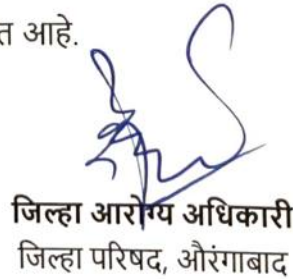 त आहे.
जिल्हा आरोग्य अधिकारी
जिल्हा परिषद, औरंगाबाद